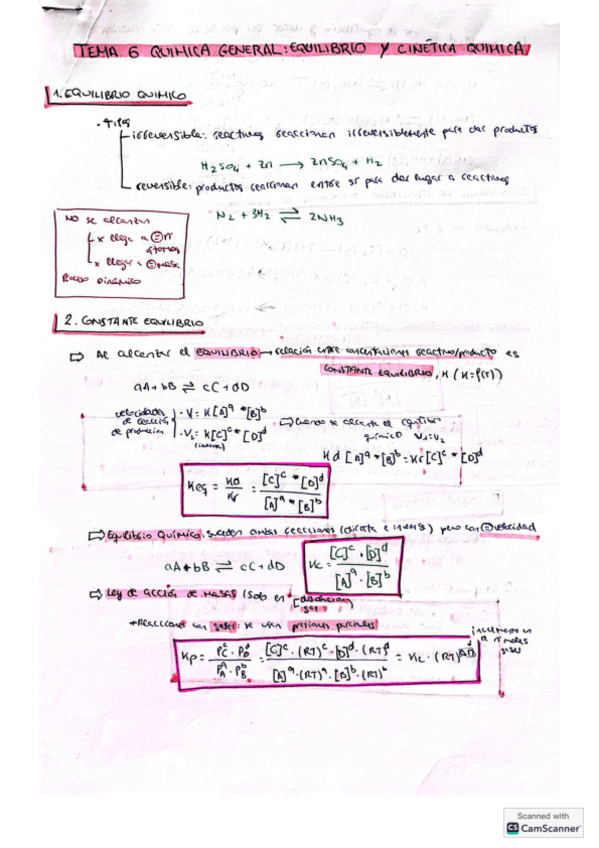 TEMA 6 QUIMICA GENERAL: EQUILIBRIO Y CINÉTICA QUIMICA
1. EQUILIBRIO QUIMICO
· Tipos
irreversible: reactivos reaccionan irreversiblemente para dar productos
H2SO4 + Zn → ZnSO4 + H2
reversible: productos reaccionan entre sí para dar lugar a reactivos
N2 + 3H2 ⇌ 2NH3
NO se alcanzan
x llegar a = nº
átomos
x llegar a = masa
Proceso DINÁMICO
2. CONSTANTE EQUILIBRIO
⇨ Al alcanzar el EQUILIBRIO → relación entre concentraciones reactivo/producto es
CONSTANTE EQUILIBRIO, K (K=f(T))
aA + bB ⇌ cC + dD
velocidades de reacción de produccion
· V1 = K[A]^a * [B]^b
· V2 = K[C]^c * [D]^d
(inversa)
⇨ Cuando se alcanza el equilibrio
químico V1=V2
Kd [A]^a * [B]^b = Kr [C]^c * [D]^d
Keq = Kd/Kr = [C]^c * [D]^d / [A]^a * [B]^b
⇨ Equilibrio Químico: suceden ambas reacciones (directa e inversa) pero con = velocidad
aA + bB ⇌ cC + dD
Kc = [C]^c · [D]^d / [A]^a · [B]^b
⇨ Ley de acción de masas (solo en disolucion
gas)
→ Reacciones en gases: se usan presiones parciales
Kp = P_C^c · P_D^d / P_A^a · P_B^b = [C]^c · (RT)^c · [D]^d · (RT)^d / [A]^a · (RT)^a · [B]^b · (RT)^b = Kc · (RT)^Δn
incremento en
nº moles
gases
Scanned with
CS CamScanner